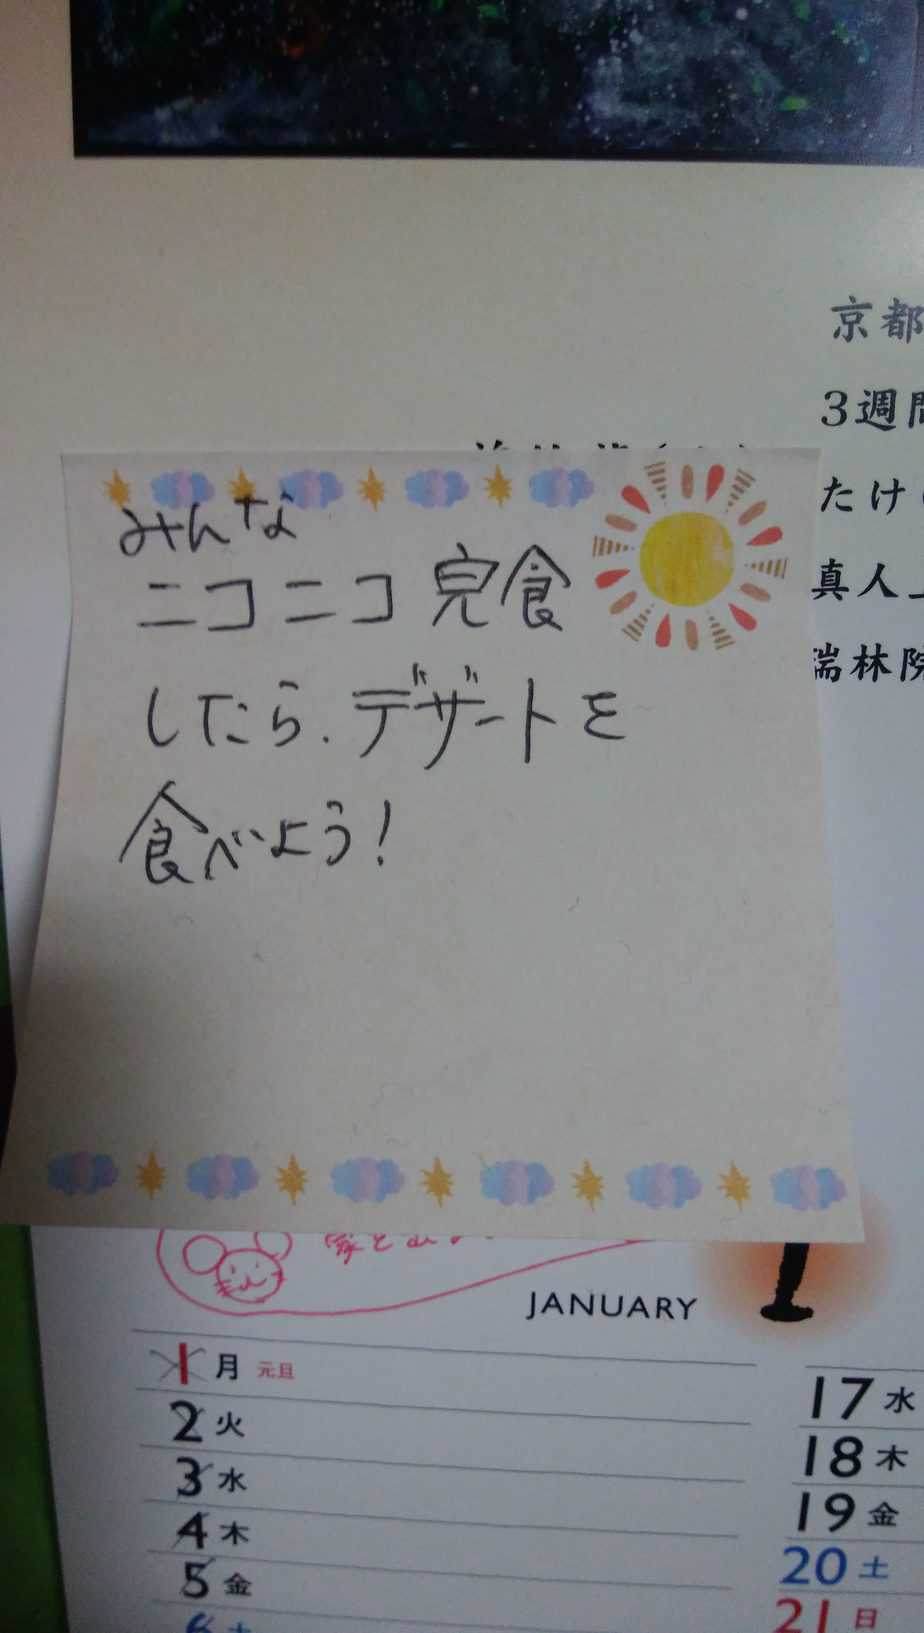 京都
3週間
たけ
真人
瑞林院
みんな
ニコニコ完食
したら、デザートを
食べよう!
JANUARY
1 月 元旦
2 火
3 水
4 木
5 金
6 土
17 水
18 木
19 金
20 土
21 日